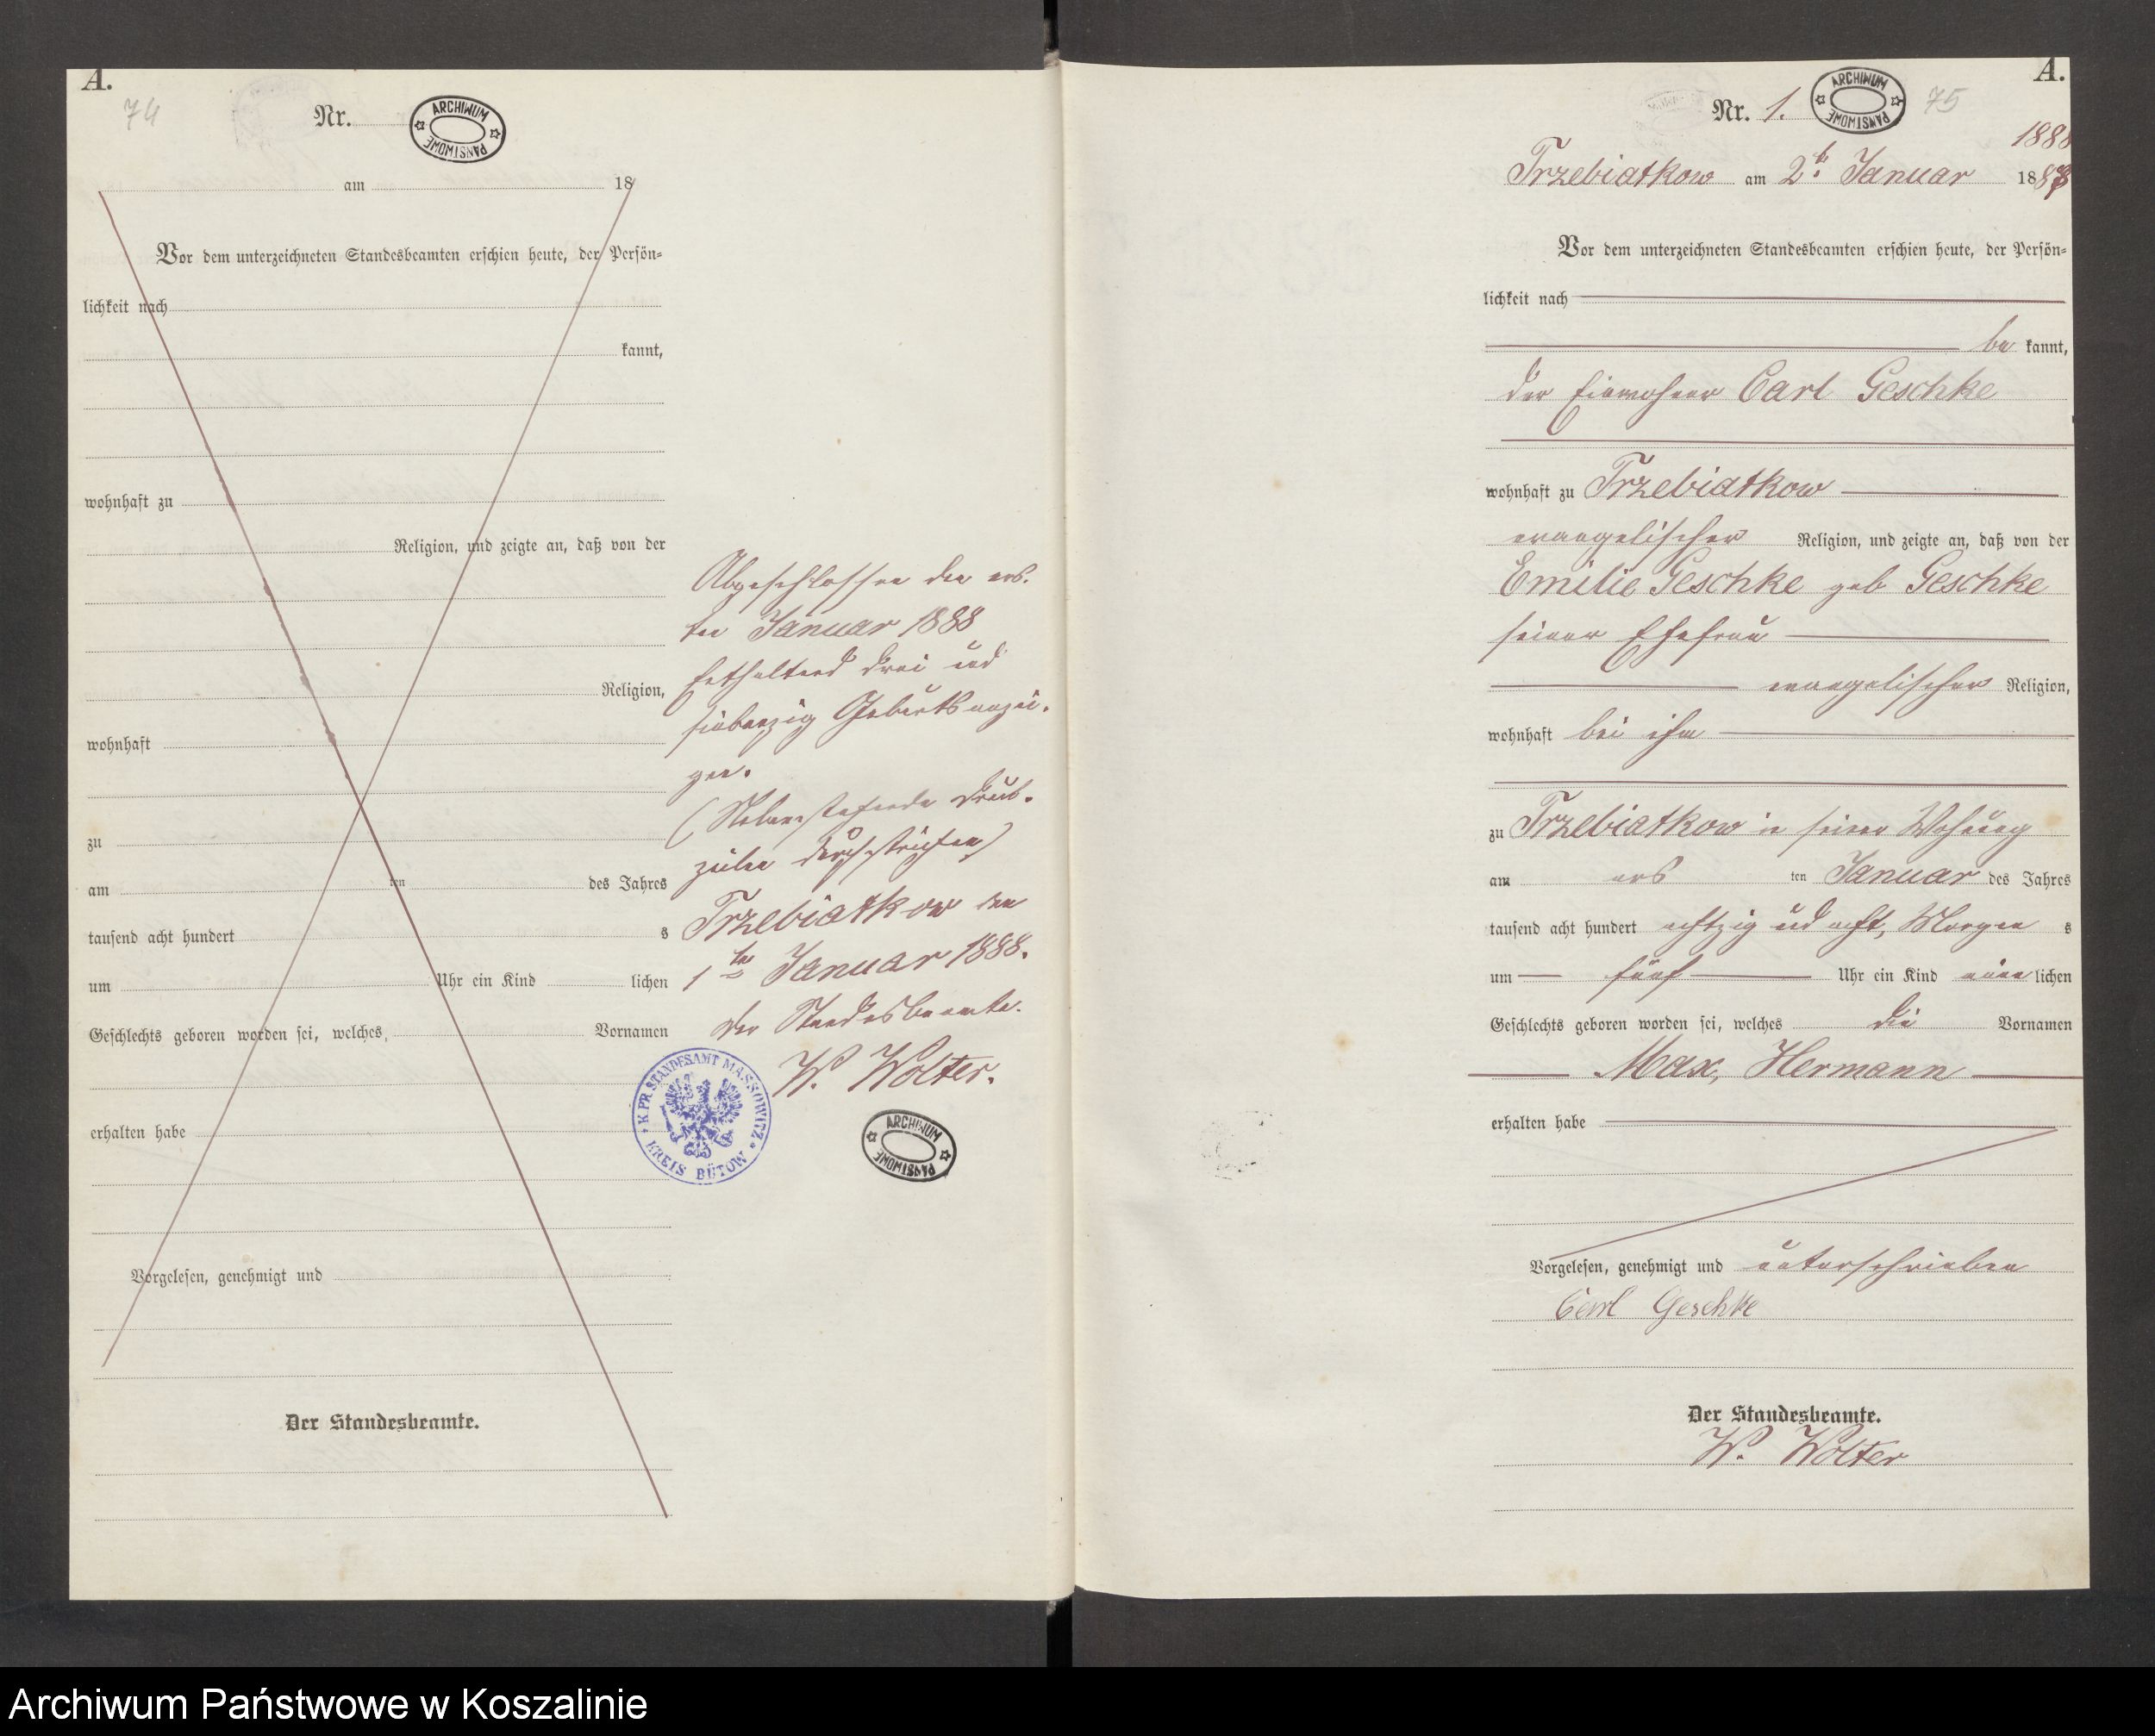 A.
74
Nr.
ARCHIWUM PAŃSTWOWE
am 18
Vor dem unterzeichneten Standesbeamten erschien heute, der Persön-
lichkeit nach
kannt,
wohnhaft zu
Religion, und zeigte an, daß von der
Religion,
wohnhaft
zu
am ten des Jahres
tausend acht hundert s
um Uhr ein Kind lichen
Geschlechts geboren worden sei, welches Vornamen
erhalten habe
Vorgelesen, genehmigt und
Der Standesbeamte.
Abgeschlossen den ers-
ten Januar 1888
Enthaltend drei und
siebenzig Geburtsanzei-
gen.
(Nebenstehende Druck-
zeilen durchstrichen)
Trzebiatkow den
1ten Januar 1888.
Der Standesbeamte.
W. Wolter.
K. PR. STANDESAMT MASSOWITZ KREIS BÜTOW
ARCHIWUM PAŃSTWOWE
A.
Nr. 1.
ARCHIWUM PAŃSTWOWE
75
1888
Trzebiatkow am 2t. Januar 1887
Vor dem unterzeichneten Standesbeamten erschien heute, der Persön-
lichkeit nach
be kannt,
der Einwohner Carl Geschke
wohnhaft zu Trzebiatkow
evangelischer Religion, und zeigte an, daß von der
Emilie Geschke geb Geschke
seiner Ehefrau
evangelischer Religion,
wohnhaft bei ihm
zu Trzebiatkow in seiner Wohnung
am ers ten Januar des Jahres
tausend acht hundert achtzig und acht, Morgen s
um fünf Uhr ein Kind männ lichen
Geschlechts geboren worden sei, welches die Vornamen
Max, Hermann
erhalten habe
Vorgelesen, genehmigt und unterschrieben
Carl Geschke
Der Standesbeamte.
W. Wolter
Archiwum Państwowe w Koszalinie